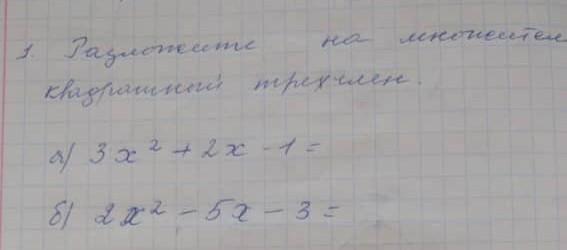 1. Разложите на множител
квадратный трехчлен.
а) 3x² + 2x - 1 =
б) 2x² - 5x - 3 =